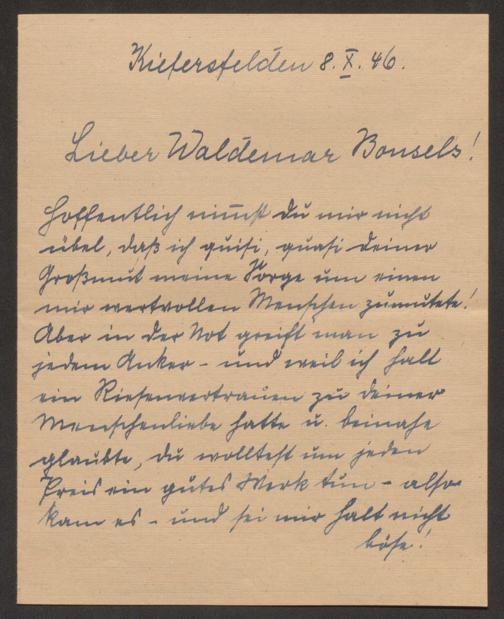 Kiefersfelden 8. X. 46.
Lieber Waldemar Bonsels!
Hoffentlich nimmst du mir nicht
übel, daß ich quasi, quasi deiner
Großmut meine Sorge um einen
mir wertvollen Menschen zumutete!
Aber in der Not greift man zu
jedem Anker - und weil ich halt
ein Riesenvertrauen zu deiner
Menschenliebe hatte u. beinahe
glaubte, du wolltest um jeden
Preis ein gutes Werk tun - also
kam es - und sei mir halt nicht
böse!